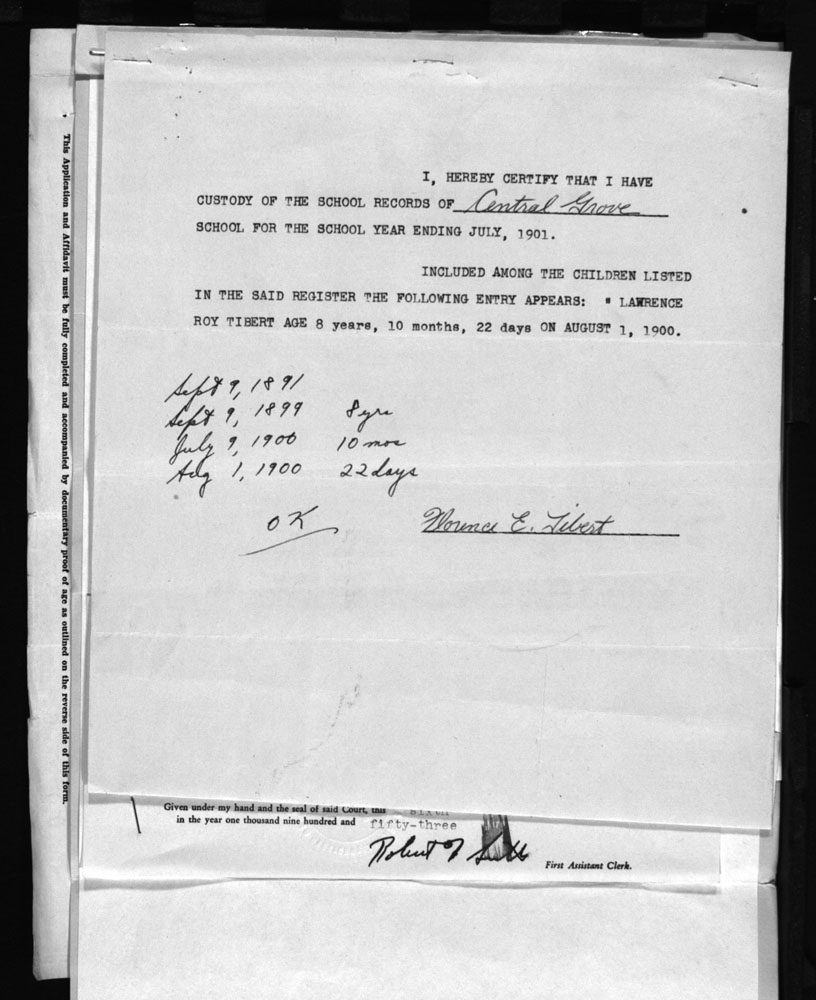 This Application and Affidavit must be fully completed and accompanied by documentary proof of age as outlined on the reverse side of this form.
I, HEREBY CERTIFY THAT I HAVE
CUSTODY OF THE SCHOOL RECORDS OF Central Grove
SCHOOL FOR THE SCHOOL YEAR ENDING JULY, 1901.
INCLUDED AMONG THE CHILDREN LISTED
IN THE SAID REGISTER THE FOLLOWING ENTRY APPEARS: " LAWRENCE
ROY TIBERT AGE 8 years, 10 months, 22 days ON AUGUST 1, 1900.
Sept 9, 1891
Sept 9, 1899 8 yrs
July 9, 1900 10 mos
Aug 1, 1900 22 days
OK
Florence E. Tibert
Given under my hand and the seal of said Court, this sixth
in the year one thousand nine hundred and fifty-three
Robert
First Assistant Clerk.